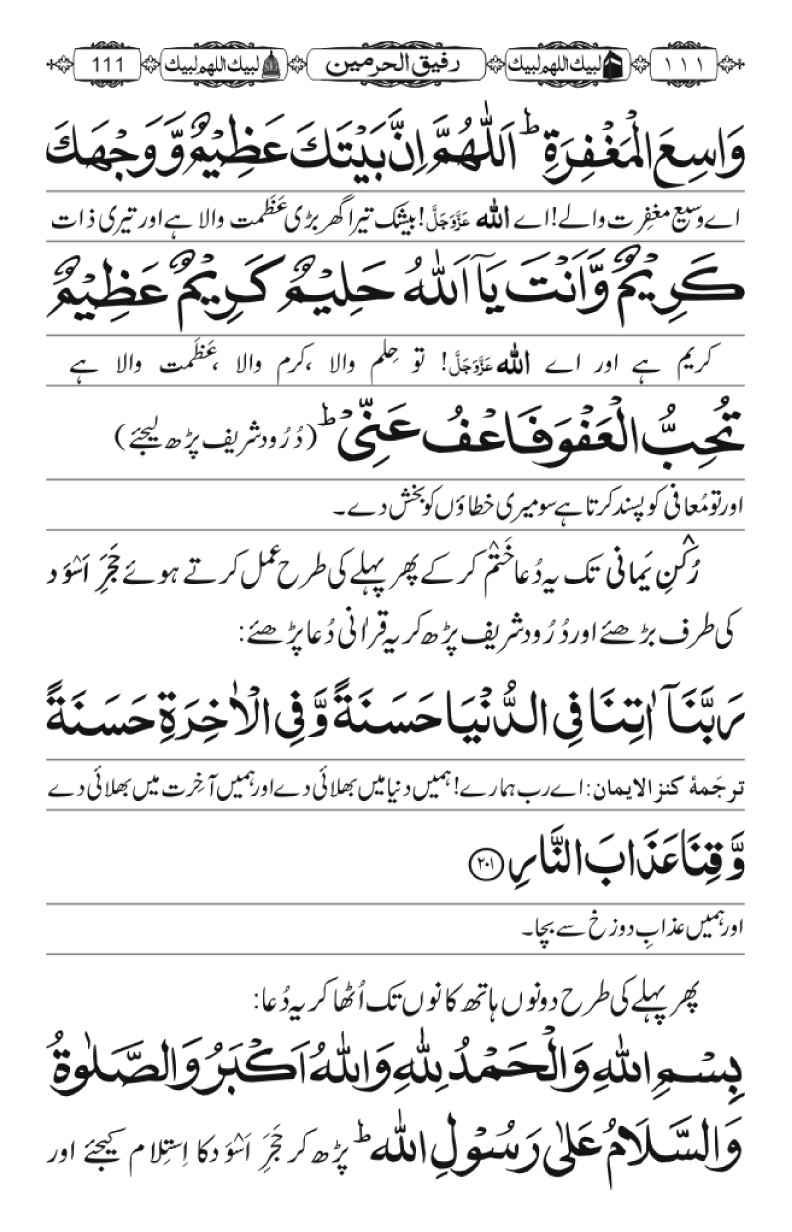 ١١١ لبیك اللهم لبیك رفیق الحرمین لبیك اللهم لبیك 111
وَاسِعَ الْمَغْفِرَةِ ؕ اَللّٰهُمَّ اِنَّ بَیْتَكَ عَظِیْمٌ وَّوَجْهَكَ
اے وسیع مغفِرت والے! اے اللہ عَزَّوَجَلَّ! بیشک تیرا گھر بڑی عَظَمت والا ہے اور تیری ذات
كَرِیْمٌ وَّاَنْتَ یَآ اَللّٰهُ حَلِیْمٌ كَرِیْمٌ عَظِیْمٌ
کریم ہے اور اے اللہ عَزَّوَجَلَّ! تو حِلم والا، کرم والا، عَظَمت والا ہے
تُحِبُّ الْعَفْوَ فَاعْفُ عَنِّیْ ؕ (دُرُود شریف پڑھ لیجئے)
اور تو مُعافی کو پسند کرتا ہے سو میری خطاؤں کو بخش دے۔
رُکنِ یَمانی تک یہ دُعا ختم کر کے پھر پہلے کی طرح عمل کرتے ہوئے حَجَرِ اَسْوَد
کی طرف بڑھئے اور دُرُود شریف پڑھ کر یہ قراٰنی دُعا پڑھئے:
رَبَّنَاۤ اٰتِنَا فِی الدُّنْیَا حَسَنَةً وَّ فِی الْاٰخِرَةِ حَسَنَةً
ترجَمۂ کنز الایمان: اے رب ہمارے! ہمیں دنیا میں بھلائی دے اور ہمیں آخِرت میں بھلائی دے
وَّ قِنَا عَذَابَ النَّارِ ﴿۲۰۱﴾
اور ہمیں عذابِ دوزخ سے بچا۔
پھر پہلے کی طرح دونوں ہاتھ کانوں تک اُٹھا کر یہ دُعا:
بِسْمِ اللّٰهِ وَالْحَمْدُ لِلّٰهِ وَاللّٰهُ اَكْبَرُ وَالصَّلٰوةُ
وَالسَّلَامُ عَلٰی رَسُوْلِ اللّٰه ؕ پڑھ کر حَجَرِ اَسْوَد کا اِستِلام کیجئے اور